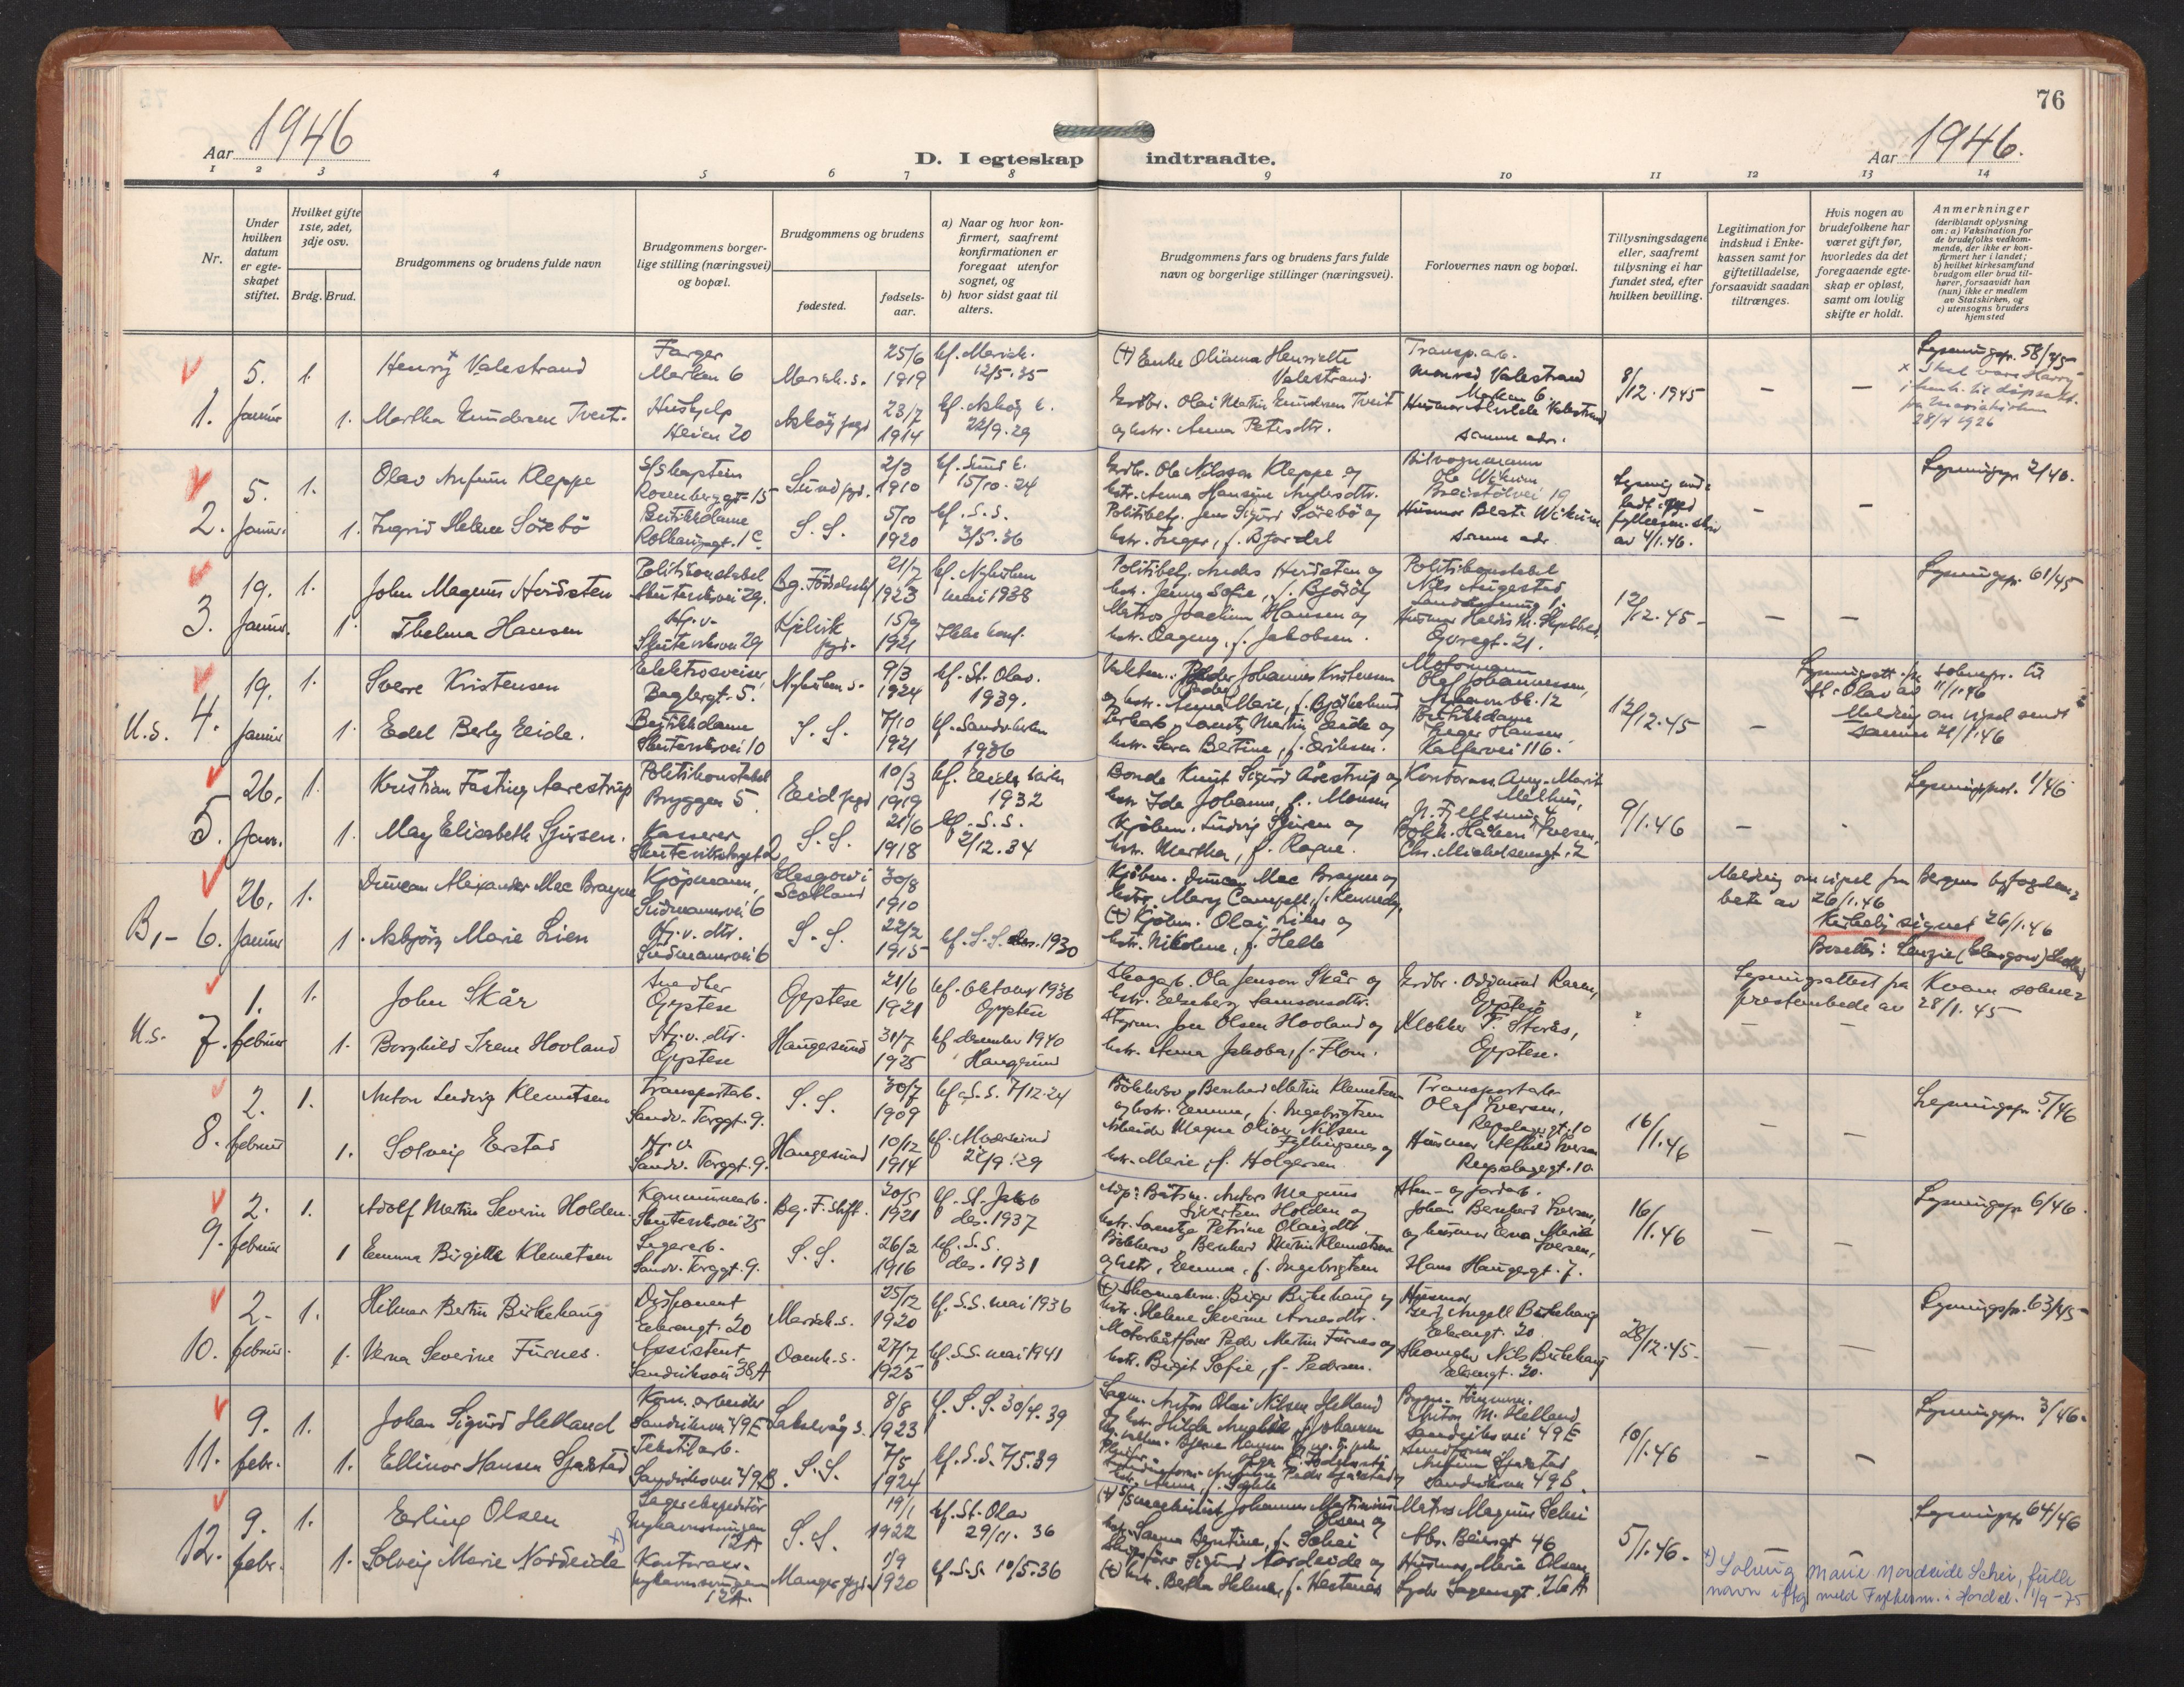 76
Aar 1946
Aar 1946.
D. I egteskap indtraadte.
1 2 3 4 5 6 7 8 9 10 11 12 13 14
Nr.
Under hvilken datum er egteskapet stiftet.
Hvilket gifte 1ste, 2det, 3dje osv.
Brdg. Brud.
Brudgommens og brudens fulde navn
Brudgommens borgerlige stilling (næringsvei) og bopæl.
Brudgommens og brudens
fødested.
fødselsaar.
a) Naar og hvor konfirmert, saafremt konfirmationen er foregaat utenfor sognet, og
b) hvor sidst gaat til alters.
Brudgommens fars og brudens fars fulde navn og borgerlige stillinger (næringsvei).
Forlovernes navn og bopæl.
Tillysningsdagene eller, saafremt tillysning ei har fundet sted, efter hvilken bevilling.
Legitimation for indskud i Enkekassen samt for giftetilladelse, forsaavidt saadan tiltrænges.
Hvis nogen av brudefolkene har været gift før, hvorledes da det foregaaende egteskap er opløst, samt om lovlig skifte er holdt.
Anmerkninger
(deriblandt oplysning om: a) Vaksination for de brudefolks vedkommende, der ikke er konfirmert her i landet;
b) hvilket kirkesamfund brudgom eller brud tilhører, forsaavidt han (hun) ikke er medlem av Statskirken, og
c) utensogns bruders hjemsted
1. 5. Januar
1. Henry Valestrand
Farger
Marken 6
Mariak. s.
25/6 1919
kf. Mariak. 12/5.35
(+) Enke Olianna Henriette Valestrand
Transp.arb. Monrad Valestrand
Marken 6.
8/12.1945
Lysningspr. 58/45
28/4 1926
1. Martha Gundersen Tveit.
Hushjelp
Heien 20
Askøy pgd
23/7 1914
kf. Askøy k. 22/9.29
Grdbr. Olai Martin Gundersen Tveit
og hstr. Anna Petersdtr.
samme adr.
2. 5. Januar.
1. Olav Arfinn Kleppe
S/S kaptein
Rosenbergsgt. 15
Sund pgd.
2/3 1910
kf. Sund k. 15/10.24
Grdbr. Ole Nilssen Kleppe og
hstr. Anna Hansine Andersdtr.
Bilvognmann
Ole Wikum
Breistølvei 19
av 4/1.46.
Lysningspr 2/46.
1. Ingrid Helene Sörebö
Butikkdame
Rothaugsgt. 1c
S. S.
5/10 1920
kf. S. S. 3/5.36
Politibetj. Jens Sigurd Sörebö og
hstr. Inger, f. Bjordal
Husmor Beate Wikum
samme adr
3. 19. Januar.
1. John Magnus Hordsten
Politikonstabel
Skuteviksvei 29.
Bg. Födselsstif
21/7 1923
kf. Nykirken mai 1938
hstr. Jenny Sofie, f. Björöy
Politikonstabel
Nils Augestad,
12/12.45
Lysningspr. 61/45
1. Thelma Hansen
Hj. v.
Skuteviksvei 29
Kjelvik pgd.
15/9 1921
Ikke konf.
Matros Joachim Hansen og
hstr. Dagny, f. Jakobsen.
Øvregt. 21.
U.s. 4. 19. Januar
1. Sverre Kristensen
Elektrosveiser
Baglergt. 5.
Nykirken s.
9/3 1924
kf. St. Olav. 1939.
Johannes Kristensen
og hstr. Anna Marie, f. Bjökelund
Motormann
Olaf Johannessen,
12/12.45
St. Olav av 11/1.46
Melding om vigsel sendt
samme 21/1.46
1. Edel Berly Eide.
Butikkdame
Skuteviksvei 10
S. S.
7/10 1921
kf. Sandv.kirken 1936
Lauritz Martin Eide og
hstr. Sara Bertine, f. Eriksen.
Butikkdame
Inger Hansen,
Kalfarvei 116.
5. 26. Jan.
1. Kristian Fasting Aarestrup
Politikonstabel
Bryggen 5
Eid pgd
10/3 1919
kf. Eids kirke 1932
Bonde Knut Sigurd Årestrup og
hstr Ida Johanne, f. Monsen
Kontorass. Aug. Marit Melhus,
N. Fjellsmug 4
9/1.46
Lysningsprot. 1/46
1. May Elisabeth Sjursen.
Kasserer
Skutevikstorget 2
S. S.
21/6 1918
kf. S. S. 2/12.34
Kjöbm. Ludvig Sjursen og
hstr. Martha, f. Ragne.
Bokh. Håkon Iversen,
Chr. Michelsensgt. 2
B.- 6. 26. Januar
1. Duncan Alexander Mac Brayne
Kjöpmann,
Sudmannsvei 6
Glasgow i Scotland
30/8 1910
Kjöbm. Duncan Mac Brayne og
hstr. Mary Campell, f. Kennedy.
Melding om vigsel fra Bergens byfogdembete av 26/1.46
Kirkelig signet 26/1.46
Bosetter: Lenzie (Glasgow) Skottland
1. Asbjörg Marie Lien
Hj. v. dtr.
Sudmannsvei 6
S. S.
22/2 1915
kf. S. S. des. 1930
(+) Kjöbm. Olai Lien og
hstr. Nikoline, f. Helle
U.s. 7. 1. februar
1. John Skår
Snedker
Øystese
Øystese
21/6 1921
kf. oktober 1936
Øystese
Skogarb. Ola Jenson Skår og
hstr. Ingeborg Samsonsdtr.
Grdbr. Oddmund Raen,
Øystese
Lysningsattest fra Kvam sokneprestembede av 28/1.45
1. Borghild Irene Hovland
Hj. v. dtr.
Øystese
Haugesund
31/7 1925
kf desember 1940
Haugesund
Styrm. Jon Olsen Hovland og
hstr. Anna Jakoba, f. Flom.
Klokker T. Skorås,
Øystese.
8. 2. februar
1. Anton Ludvig Klemetsen
Transportarb.
Sandv. Torggt. 9.
S. S.
30/7 1909
kf. S. S. 7/12.24
Bökker Bernhard Martin Klemetsen
og hstr. Emma, f. Ingebrigtsen
Transportarb.
Olaf Iversen,
Repslagergt. 10
16/1.46
Lysningspr. 5/46
1. Solveig Erstad
Hj. v
Sandv. Torggt. 9.
Haugesund
10/12 1914
22/9.29
Arbeider Magne Oliver Nilsen
Fyllingsnes og
hstr. Marie, f. Holgersen
Husmor Alfhild Iversen
Repslagergt. 10
9. 2. februar
1. Adolf Martin Severin Holden.
Kommunearb.
Skuteviksvei 25
Bg. F. Stift.
20/5 1921
kf. St. Jakob des. 1937
Adp: Båtsm. Anders Magnus
Sivertsen Holden og
hstr. Lorentza Petrine Olaisdtr.
Sten- og jordarb.
Johan Bernhard Iversen,
16/1.46
Lysningspr 6/46.
1 Emma Birgitte Klemetsen
Lagerarb.
Sandv. Torggt. 9.
S. S.
26/2 1916
kf. S. S. des. 1931
Bernhard Martin Klemetsen
og hstr, Emma, f. Ingebrigtsen
og husmor Ema Marie Iversen,
Hans Haugesgt. 7.
10. 2. februar.
1. Hilmar Bertin Birkehaug
Disponent
Ekrengt. 20
Mariak. s.
25/12 1920
kf. S.S. mai 1936
(+) Skomakerm. Birger Birkehaug og
hstr. Helene Severine Arnesdtr.
Husmor
Gerd Angell Birkehaug
Ekrengt. 20
28/12.45
Lysningspr. 63/45
1. Verna Severine Furnes.
Assistent
Sandviksvei 38A
Domk. s.
27/7 1925
kf. S.S. mai 1941
Motorbåtförer Peder Martin Furnes og
hstr. Birgit Sofie, f. Pedersen.
Skomaker Nils Birkehaug
Ekrengt. 20.
11. 9. febr.
1. Johan Sigurd Helland
Kom. arbeider
Sandviksvei 49E
Laksevåg s.
8/8 1923
kf. S. S. 30/4.39
Anton Olai Nilsen Helland
Anton M. Helland
Sandviksvei 49E
10/1.46
Lysningspr. 3/46.
1. Ellinor Hansen Gjerstad
Tekstilarb.
Sandviksvei 49B.
S. S.
7/5 1924
kf. S. S. 7/5.39
Sandviksvei 49B.
12. 9. febr.
1. Erling Olsen
Lagerekspeditör
Nyhavnsvingen 12A
S. S.
19/1 1922
kf. St. Olav 29/11.36
(+) S/S maskinist Johannes Martinius Olsen og
hstr. Sanna Bentine, f. Schei
Matros Magnus Schei
Abs. Beiersgt 46
5/1.46.
Lysningspr 64/46
1. Solveig Marie Nordeide x)
Kontorass.
Nyhavnsvingen 12A.
Manger pgd.
1/9 1920
kf. S.S. 10/5.36
Skipsförer Sigurd Nordeide og
(+) hstr. Berta Helene, f. Hestenes
Husmor Marie Olsen,
Lyder Sagensgt. 26A
x) Solveig Marie Nordeide Schei, fulle
navn iflg meld Fylkesm. i Hordal. 11/9-75